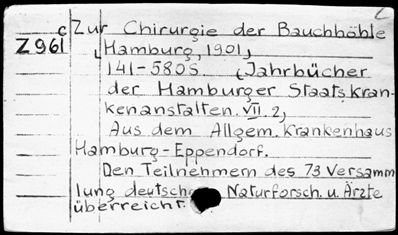 c Zur Chirurgie der Bauchhöhle
Z961 (Hamburg, 1901)
141-580 S. (Jahrbücher
der Hamburger Staatskran-
kenanstalten. VII. 2)
Aus dem Allgem. Krankenhaus
Hamburg-Eppendorf.
Den Teilnehmern des 73 Versamm
lung deutscher Naturforsch. u. Ärzte
überreicht.